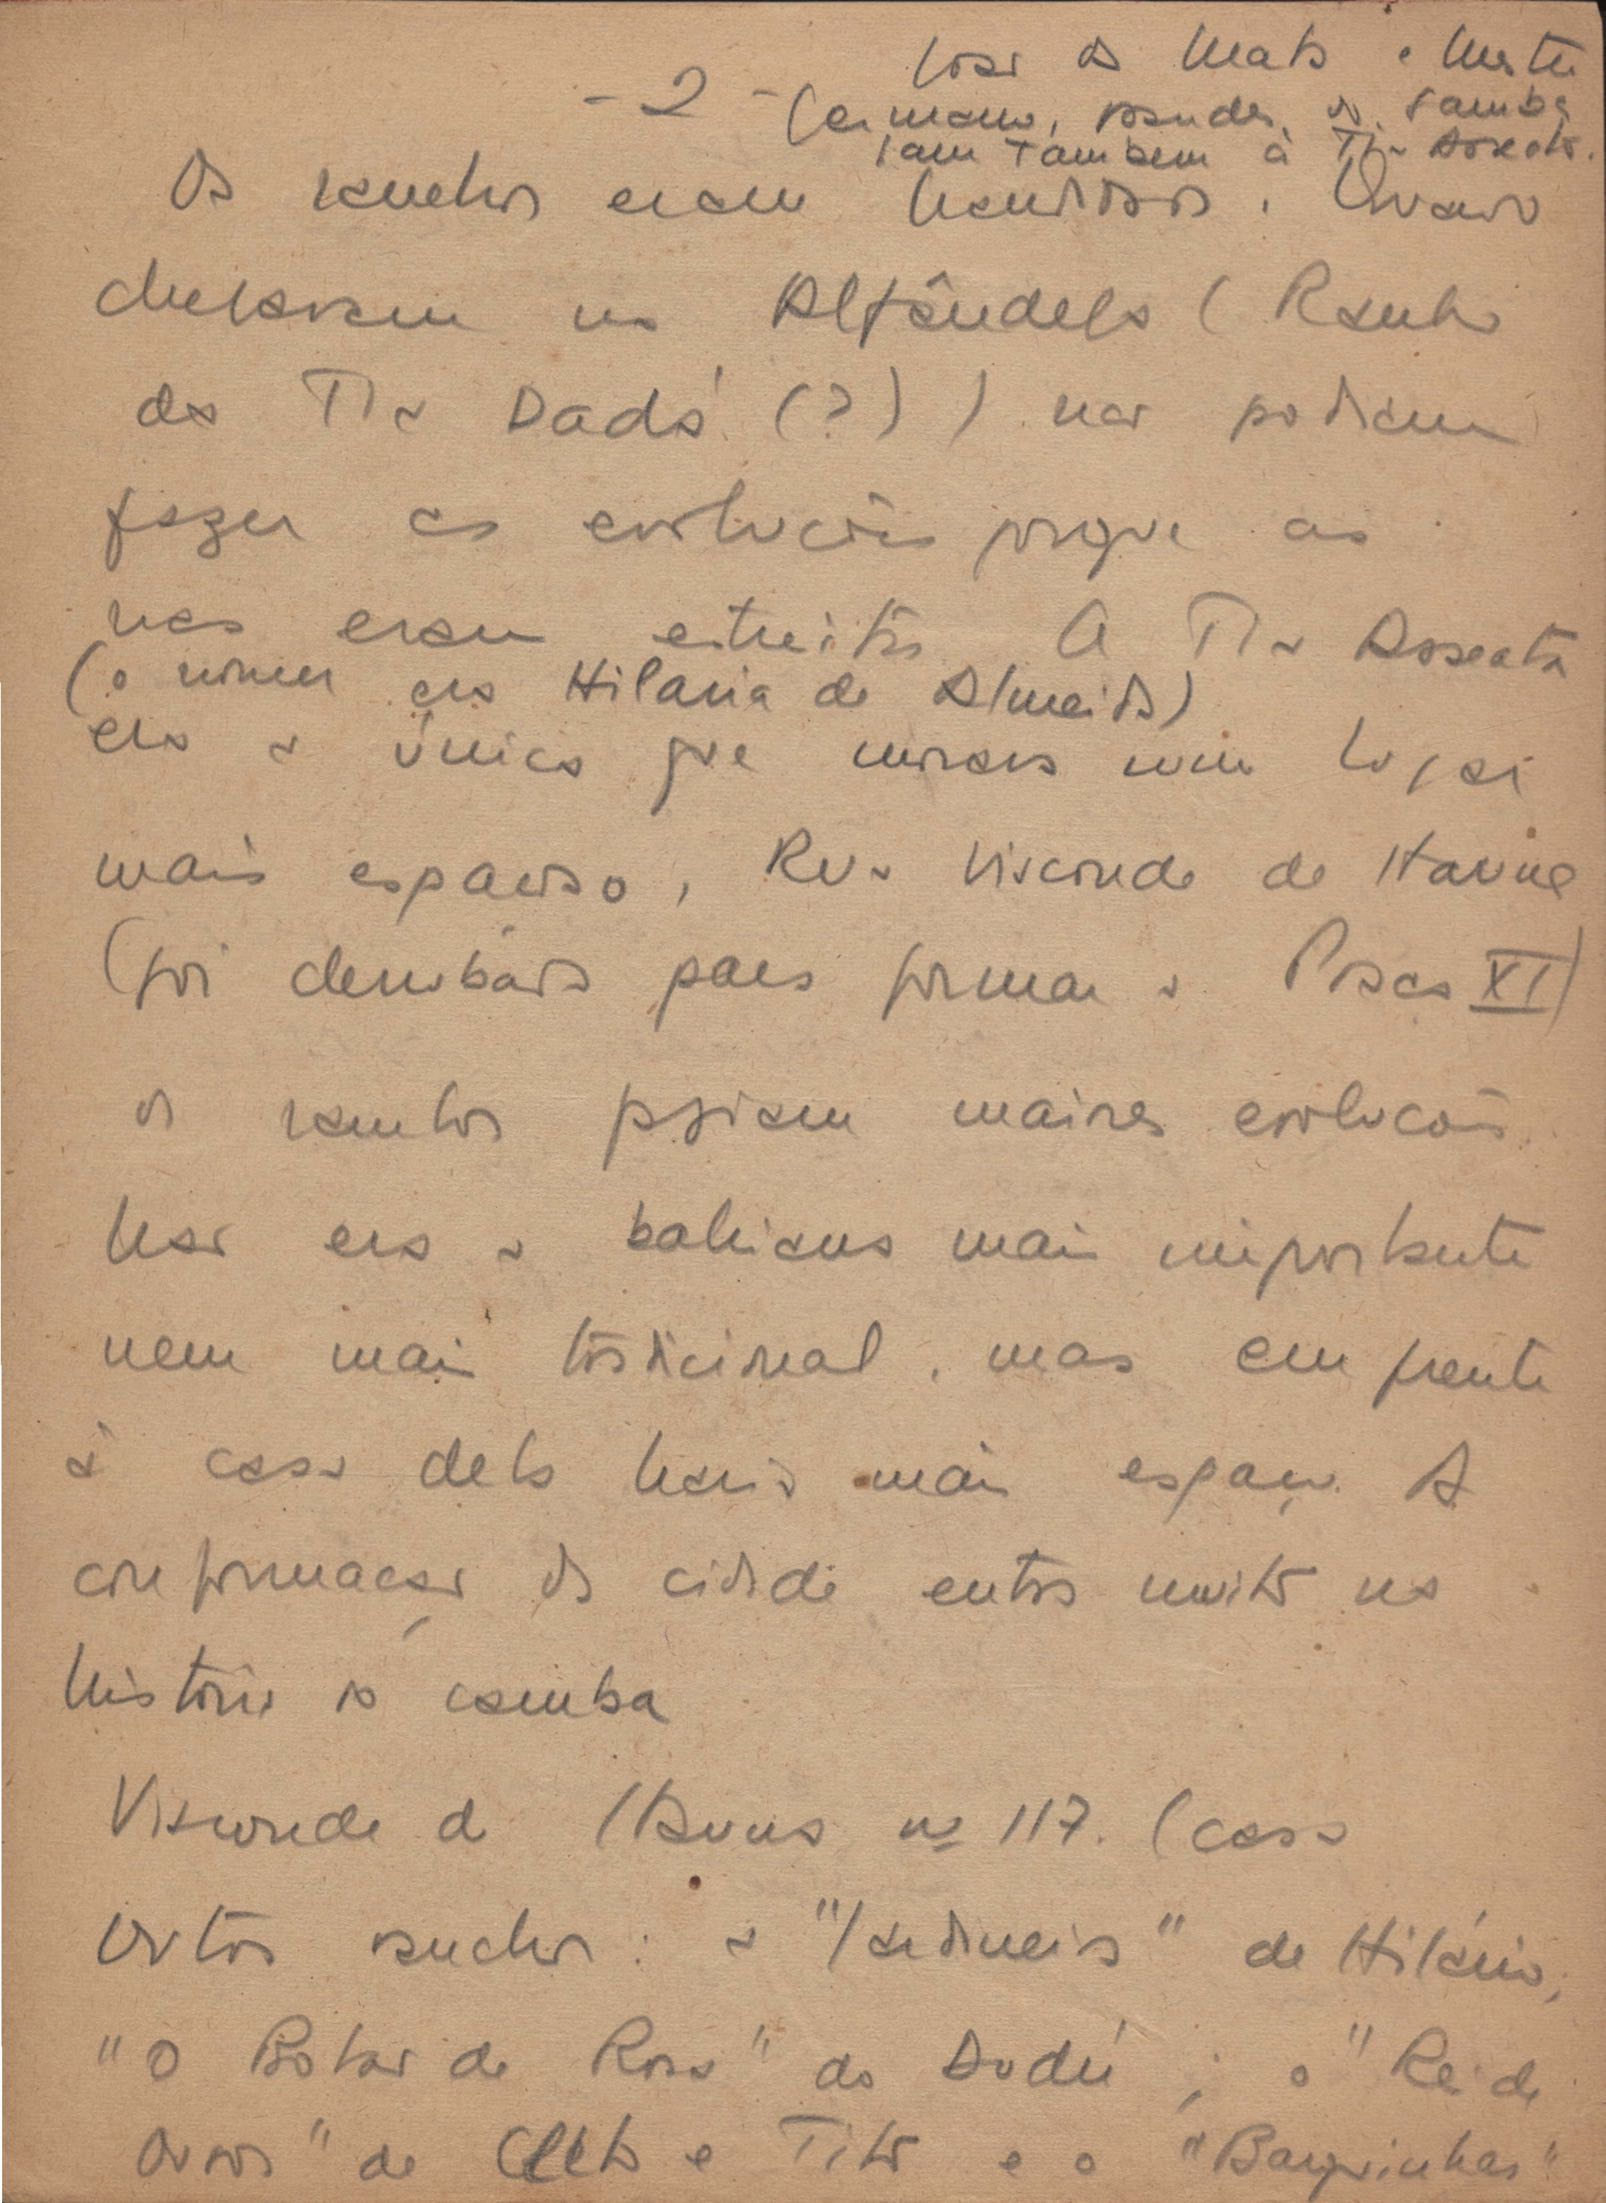 - 2 -
João da Mata e Mestre
Germano, bambas do samba
iam também à Tia Asseata.
Os ranchos eram . Quando
chegavam na Alfândega (Rancho
da Tia Dadá (?) ) não podiam
fazer as evoluções porque as
ruas eram estreitas. A Tia Asseata
(o nome era Hilaria de Almeida)
era a única que morava num lugar
mais espaçoso, Rua Visconde de Itaúna
(foi derrubada para formar a Praça XI)
os ranchos faziam maiores evoluções.
Não era a bahiana mais importante
nem mais tradicional, mas em frente
à casa dela havia mais espaço. A
conformação da cidade entrou muito na
história do samba
Visconde de Itauna nº 117. (casa
Outros ranchos: a "Jardineira" de Hilário,
"O Botão de Rosa" do Dudú; o "Rei de
Ouros" de e Tito e o "Barquinhas"